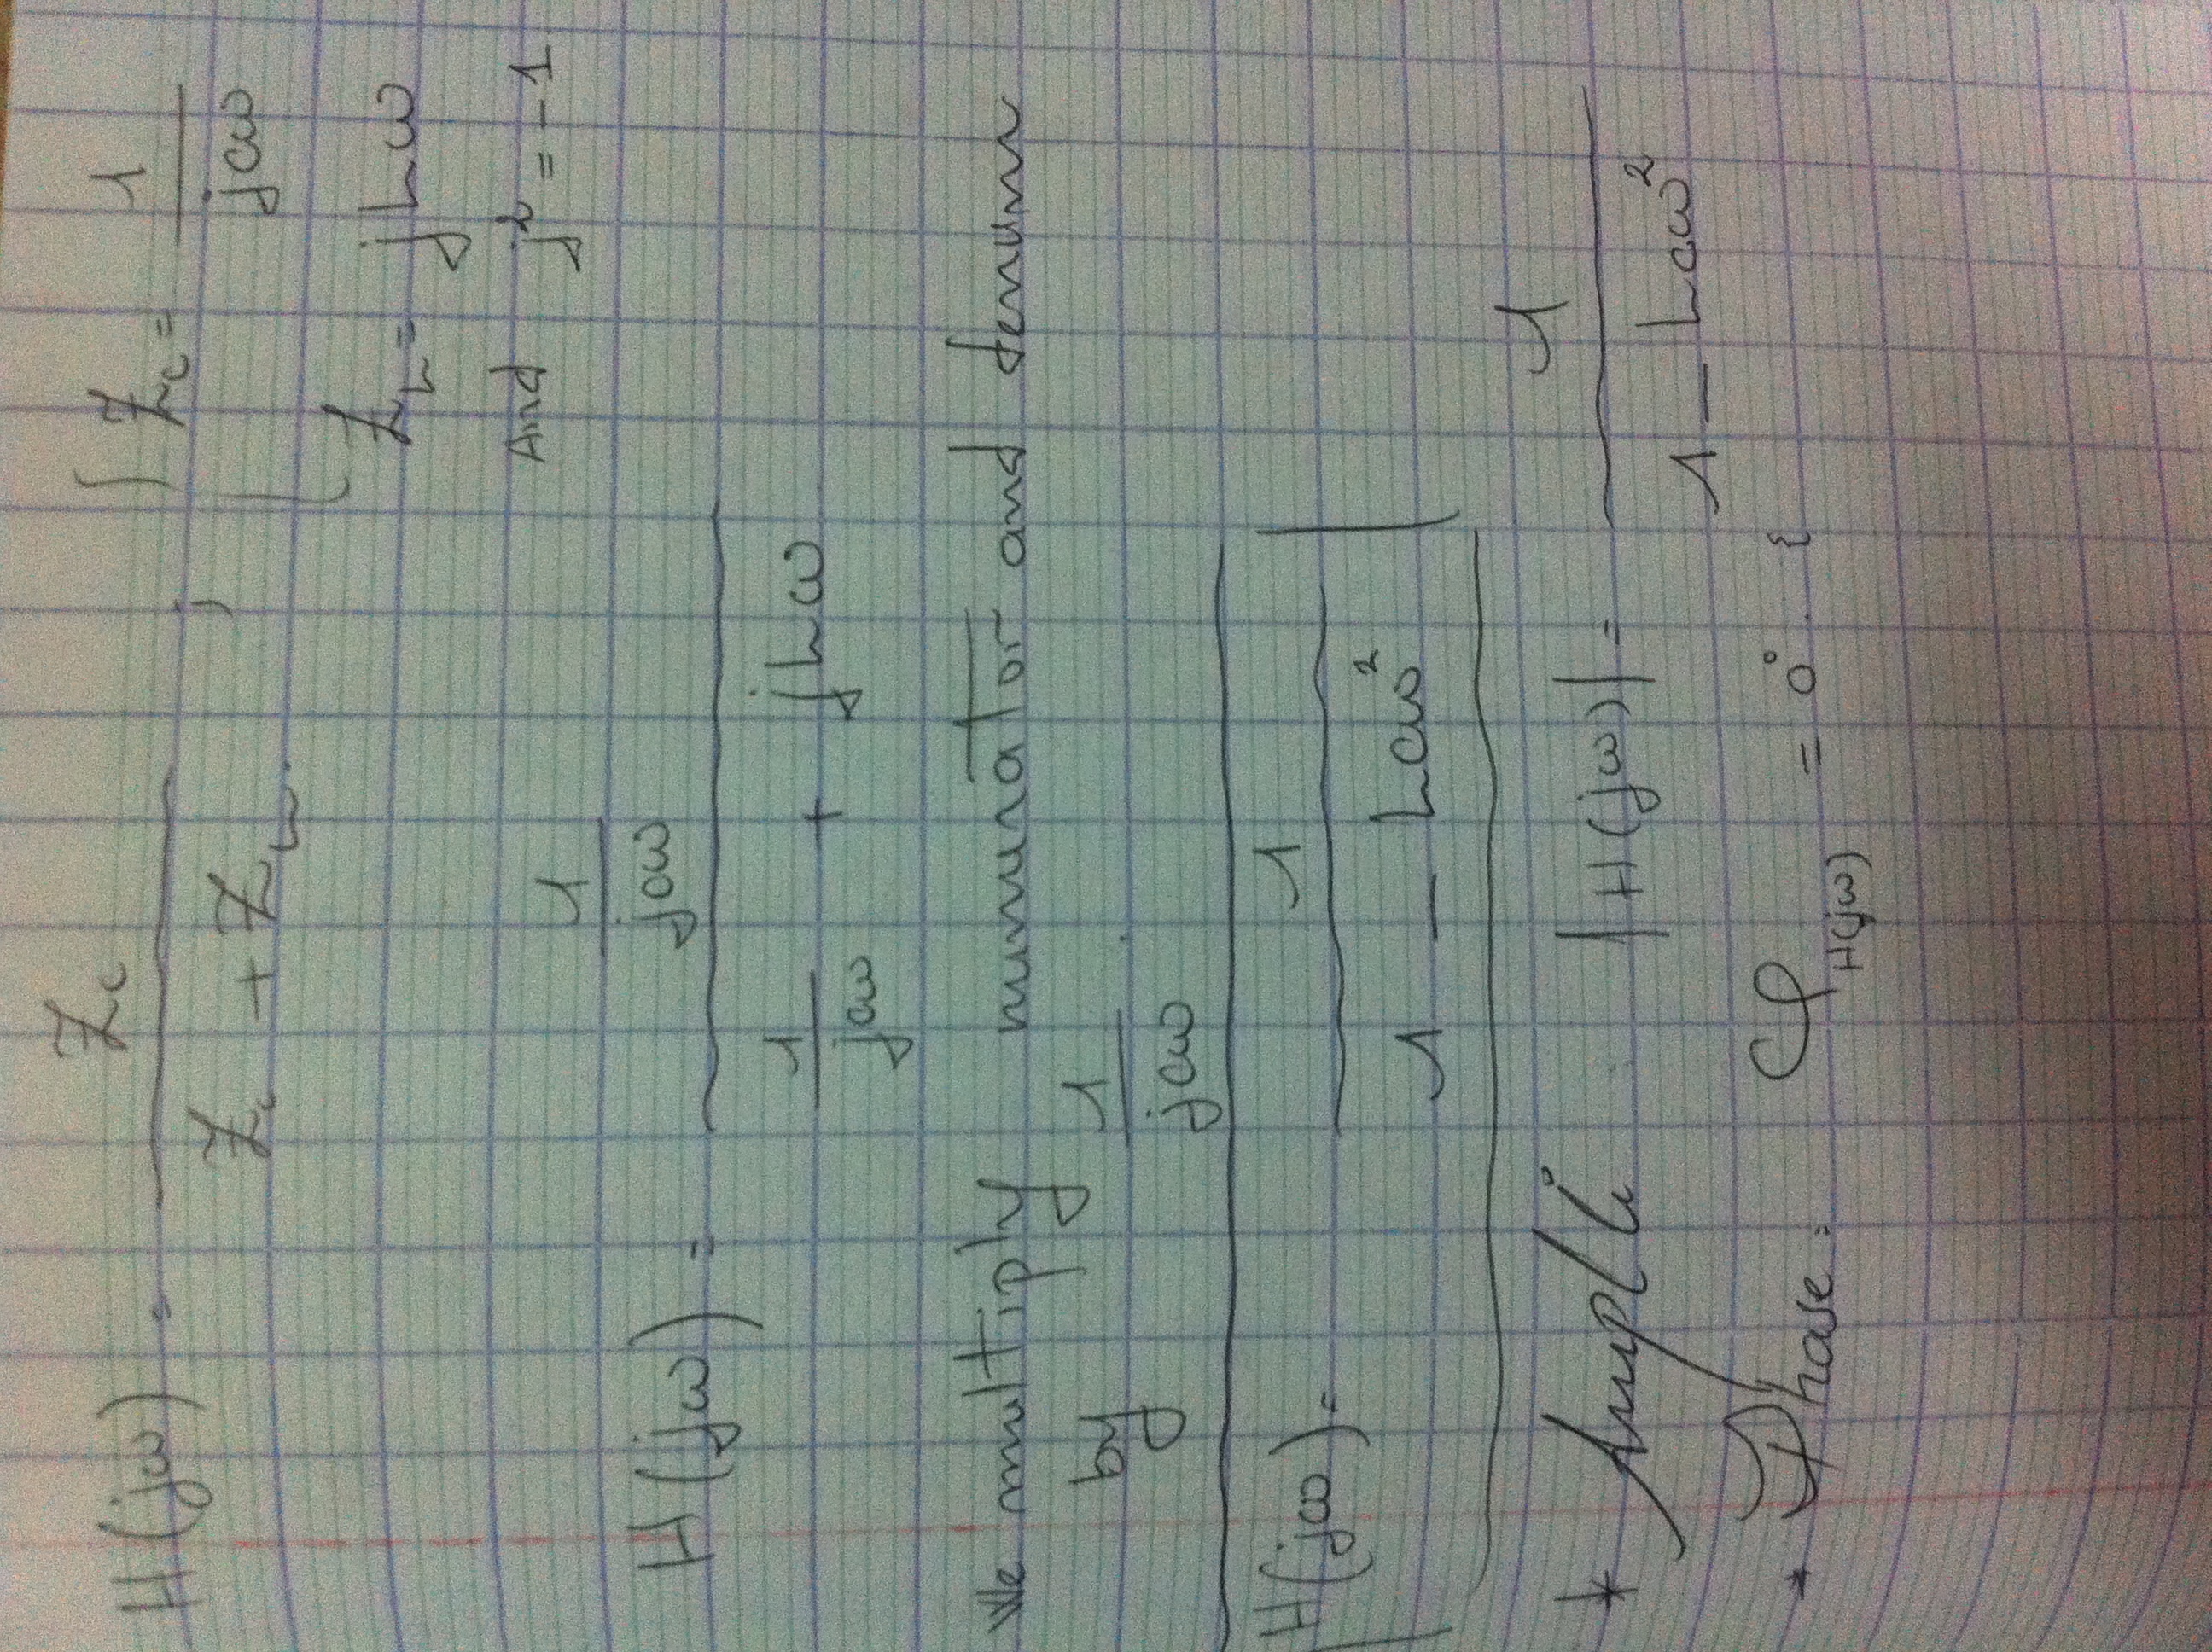 H(jω) = Zc / (Zc + ZL) , { Zc = 1 / jcω
ZL = jLω
And j² = -1
H(jω) = (1 / jcω) / (1 / jcω + jLω)
We multiply numunator and denumn
by 1 / jcω
H(jω) = 1 / (1 - Lcω²)
* Ampli |H(jω)| = 1 / (1 - Lcω²)
* Phase: φH(jω) = 0°.